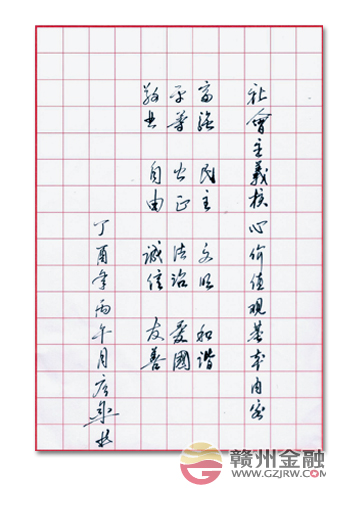 社會主義核心价值观基本内容
富强 民主 文明 和谐
平等 公正 法治 愛國
敬业 自由 诚信 友善
丁酉年丙午月
赣州金融
WWW.GZJRW.COM